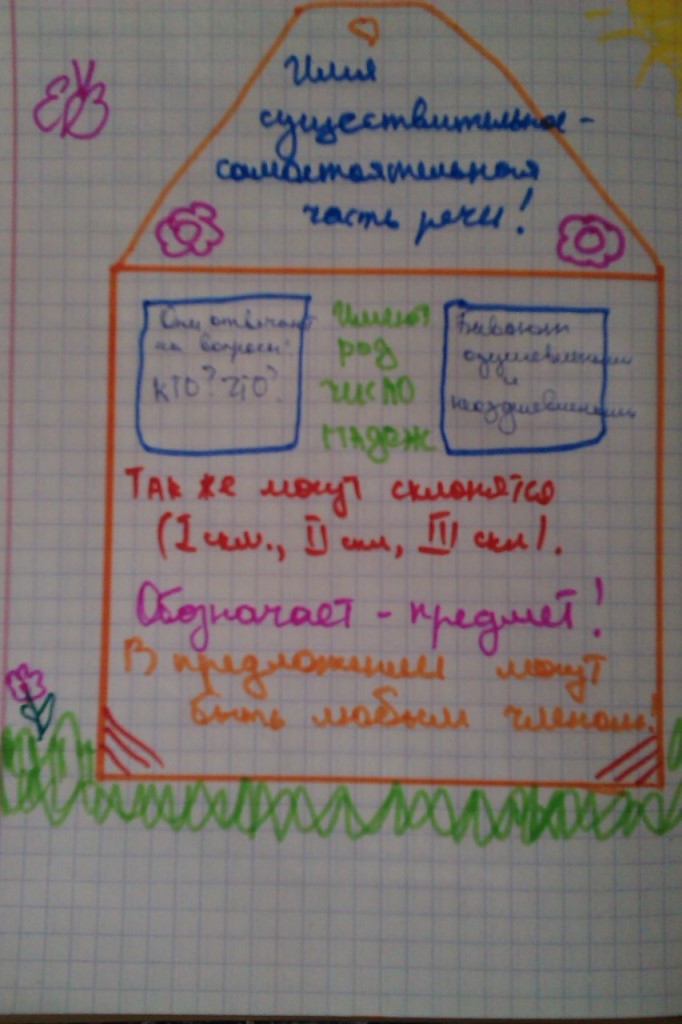 Имя
существительное -
самостоятельная
часть речи!
Они отвечают
на вопросы:
кто? что?
Имеют
род
число
падеж
Бывают
одушевлёнными
и
неодушевлёнными
Так же могут склонятся
(I скл., II скл, III скл).
Обозначает - предмет!
В предложении могут
быть любым членом!